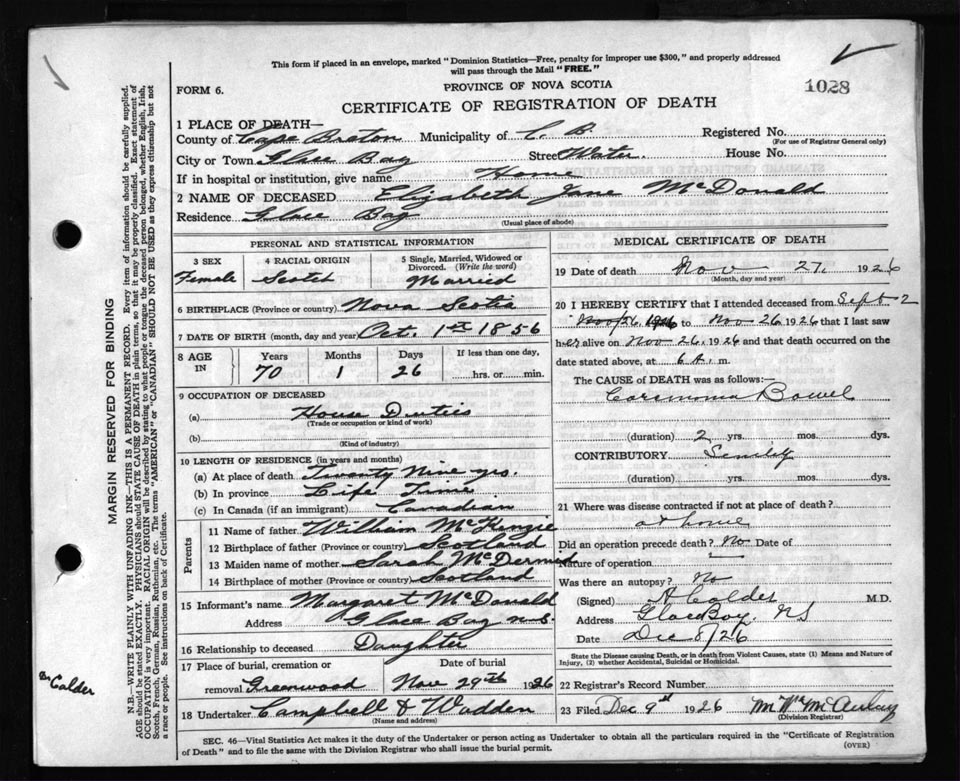 This form if placed in an envelope, marked "Dominion Statistics—Free, penalty for improper use $300," and properly addressed
will pass through the Mail "FREE."
FORM 6.
PROVINCE OF NOVA SCOTIA
1028
CERTIFICATE OF REGISTRATION OF DEATH
1 PLACE OF DEATH—
County of Cape Breton Municipality of C. B. Registered No.
(For use of Registrar General only)
City or Town Glace Bay Street Water. House No.
If in hospital or institution, give name Home
2 NAME OF DECEASED Elizabeth Jane McDonald
Residence Glace Bay
(Usual place of abode)
PERSONAL AND STATISTICAL INFORMATION
3 SEX 4 RACIAL ORIGIN 5 Single, Married, Widowed or
Divorced. (Write the word)
Female Scotch Married
6 BIRTHPLACE (Province or country) Nova Scotia
7 DATE OF BIRTH (month, day and year) Oct. 1st 1856
8 AGE IN Years Months Days If less than one day,
70 1 26 hrs. or min.
9 OCCUPATION OF DECEASED
(a) House Duties
(Trade or occupation or kind of work)
(b)
(Kind of industry)
10 LENGTH OF RESIDENCE (in years and months)
(a) At place of death Twenty Nine yrs.
(b) In province Life Time
(c) In Canada (if an immigrant) Canadian
Parents
11 Name of father William McKenzie
12 Birthplace of father (Province or country) Scotland
13 Maiden name of mother Sarah McDermid
14 Birthplace of mother (Province or country) Scotland
15 Informant's name Margaret McDonald
Address Glace Bay N.S.
16 Relationship to deceased Daughter
17 Place of burial, cremation or Date of burial
removal Greenwood Nov 29th 1926
18 Undertaker Campbell & Wadden
(Name and address)
MEDICAL CERTIFICATE OF DEATH
19 Date of death Nov 27, 1926
(Month, day and year)
20 I HEREBY CERTIFY that I attended deceased from Sept 2
Nov/26 1926 to Nov 26 1926 that I last saw
her alive on Nov 26, 1926 and that death occurred on the
date stated above, at 6 A. m.
The CAUSE OF DEATH was as follows:—
Carsinoma Bowel
(duration) 2 yrs. mos. dys.
CONTRIBUTORY Senility
(duration) yrs. mos. dys.
21 Where was disease contracted if not at place of death?
at home
Did an operation precede death? No Date of
Nature of operation
Was there an autopsy? No
(Signed) A Calder M.D.
Address Glace Bay, NS
Date Dec 8/26
State the Disease causing Death, or in death from Violent Causes, state (1) Means and Nature of
Injury, (2) whether Accidental, Suicidal or Homicidal.
22 Registrar's Record Number
23 Filed Dec 9th 1926 McAulay
(Division Registrar)
SEC. 46—Vital Statistics Act makes it the duty of the Undertaker or person acting as Undertaker to obtain all the particulars required in the "Certificate of Registration
of Death" and to file the same with the Division Registrar who shall issue the burial permit.
(OVER)
MARGIN RESERVED FOR BINDING
N.B. WRITE PLAINLY WITH UNFADING INK—THIS IS A PERMANENT RECORD. Every item of information should be carefully supplied.
AGE should be stated EXACTLY. PHYSICIANS should STATE CAUSE OF DEATH in plain terms, so that it may be properly classified. Exact statement of
OCCUPATION is very important. RACIAL ORIGIN will be described by stating to what people or tongue the deceased person belonged, whether English, Irish,
Scotch, French, German, Russian, Ruthenian, etc. The terms "AMERICAN" or "CANADIAN" SHOULD NOT BE USED as they express citizenship but not
a race or people. See instructions on back of Certificate.
Dr Calder